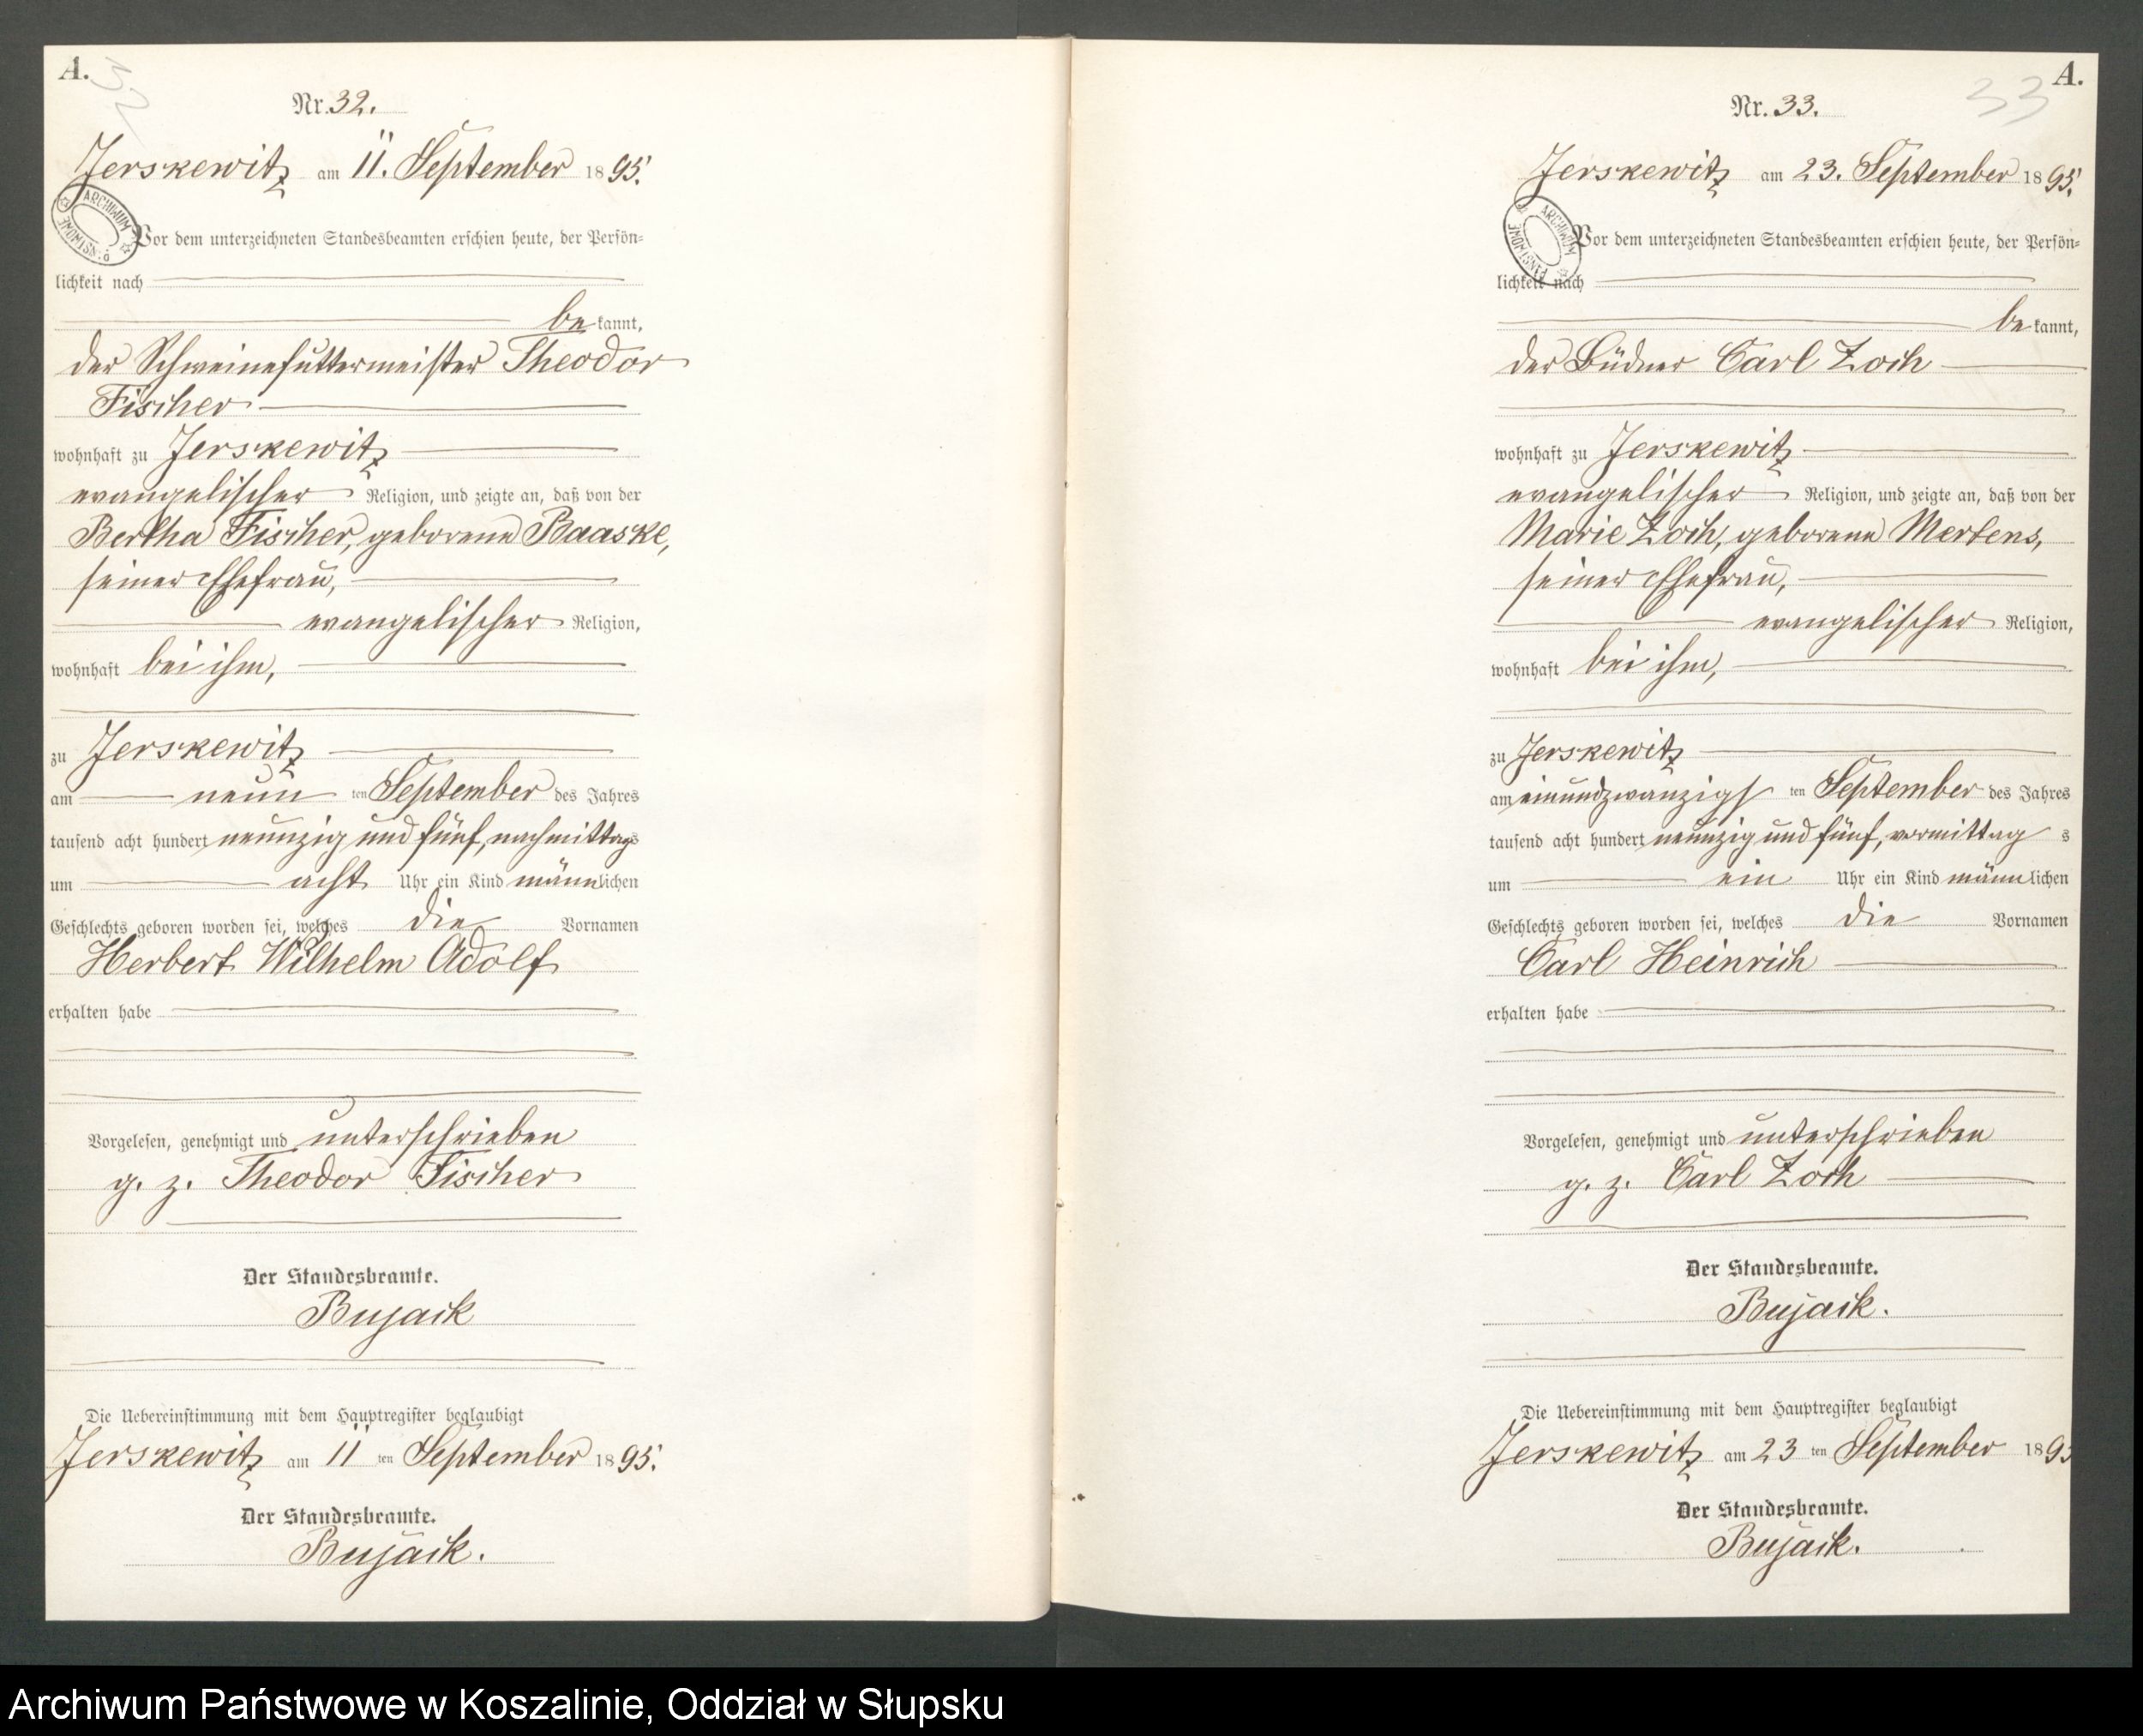 A.
32
Nr. 32.
Jerskewitz am 11. September 1895.
Vor dem unterzeichneten Standesbeamten erschien heute, der Persön-
lichkeit nach
bekannt,
der Schweinefuttermeister Theodor
Fischer
wohnhaft zu Jerskewitz
evangelischer Religion, und zeigte an, daß von der
Bertha Fischer, geborene Baaske,
seiner Ehefrau,
evangelischer Religion,
wohnhaft bei ihm,
zu Jerskewitz
am neun ten September des Jahres
tausend acht hundert neunzig und fünf, nachmittags
um acht Uhr ein Kind männlichen
Geschlechts geboren worden sei, welches die Vornamen
Herbert Wilhelm Adolf
erhalten habe
Vorgelesen, genehmigt und unterschrieben
g. z. Theodor Fischer
Der Standesbeamte.
Bujack
Die Uebereinstimmung mit dem Hauptregister beglaubigt
Jerskewitz am 11 ten September 1895.
Der Standesbeamte.
Bujack.
A.
33
Nr. 33.
Jerskewitz am 23. September 1895.
Vor dem unterzeichneten Standesbeamten erschien heute, der Persön-
lichkeit nach
bekannt,
der Büdner Carl Zoch
wohnhaft zu Jerskewitz
evangelischer Religion, und zeigte an, daß von der
Marie Zoch, geborene Mertens,
seiner Ehefrau,
evangelischer Religion,
wohnhaft bei ihm,
zu Jerskewitz
am einundzwanzigsten September des Jahres
tausend acht hundert neunzig und fünf, vormittags
um ein Uhr ein Kind männlichen
Geschlechts geboren worden sei, welches die Vornamen
Carl Heinrich
erhalten habe
Vorgelesen, genehmigt und unterschrieben
g. z. Carl Zoch
Der Standesbeamte.
Bujack.
Die Uebereinstimmung mit dem Hauptregister beglaubigt
Jerskewitz am 23 ten September 1895
Der Standesbeamte.
Bujack.
Archiwum Państwowe w Koszalinie, Oddział w Słupsku